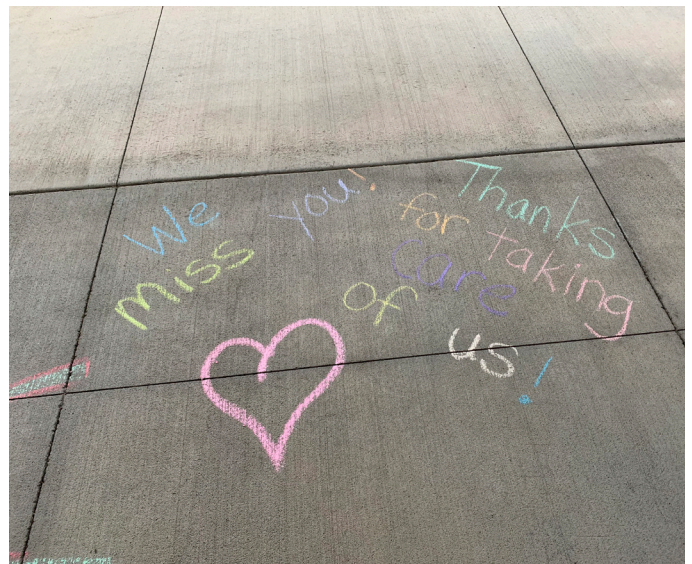 We
miss you!
Thanks
for taking
care
of us!